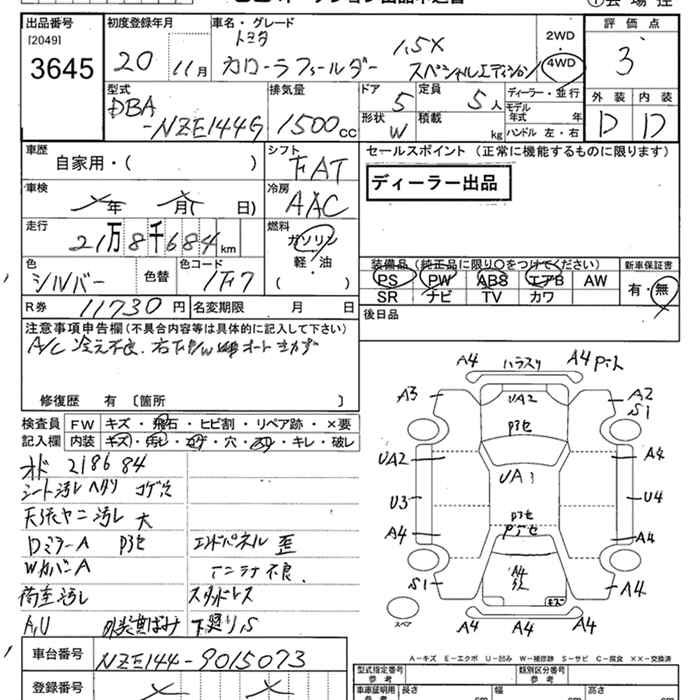 出品番号 初度登録年月 車名・グレード 評価点
[2049] トヨタ 1.5X 2WD
3645 20 11月 カローラフィールダー スペシャルエディション 4WD 3
型式 排気量 ドア 定員 ディーラー・並行 外装 内装
DBA 5 5人 モデル年式 年
-NZE144G 1500cc 形状 W 積載 kg ハンドル 左・右 D D
車歴 シフト セールスポイント (正常に機能するものに限ります)
自家用・( ) FAT
車検 冷房 ディーラー出品
年 月( 日) AAC
走行 燃料
21万8千684km ガソリン
色 色替 色コード 軽・油 装備品 (純正品に限り○をつけてください) 新車保証書
シルバー 1F7 ( ) PS PW ABS エアB AW 有・無
SR ナビ TV カワ
R券 11730円 名変期限 月 日 後日品
注意事項申告欄 (不具合内容等は具体的に記入して下さい)
A/C 冷え不良
修復歴 有 〔箇所 〕
検査員 FW キズ・飛石・ヒビ割・リペア跡・×要
記入欄 内装 キズ・汚レ・コゲ・穴・スレ・キレ・破レ
オド 218684
シート汚レ ヘタリ コゲ穴
天張ヤニ汚レ 大
DミラーA P3セ エンドパネル 歪
WカバーA アンテナ不良
荷室汚レ スタッドレス
A,U 外装黄ばみ 下廻りS
A4 A4
A3 UA2 A2
P3セ S1
UA2 A4
UA1
U3 U4
P3セ
A4 A4
S1 A4 A4
キズ
スペア A4 A4 A4
A-キズ E-エクボ U-凹み W-補修跡 S-サビ C-腐食 ××-交換済
車台番号 NZE144-9015073
型式指定番号 参考 類別区分番号 参考
登録番号 車庫証明用 参考 長さ cm 幅 cm 高さ cm